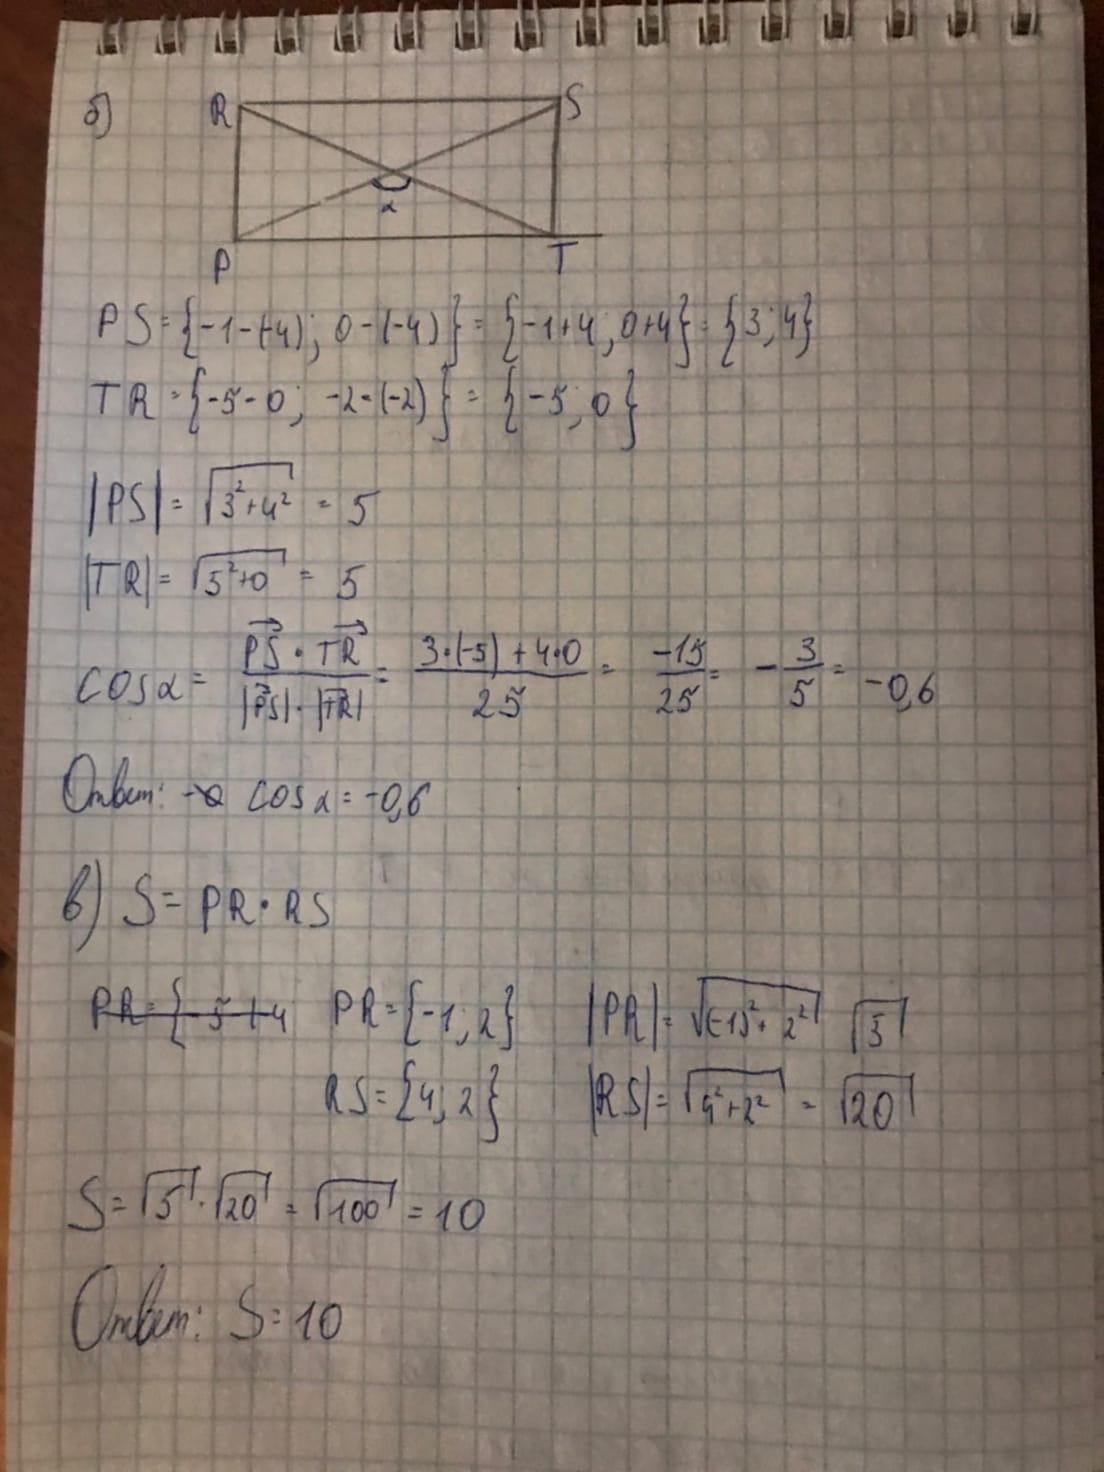 б)
R S
α
P T
PS = {-1-(-4); 0-(-4)} = {-1+4; 0+4} = {3; 4}
TR = {-5-0; -2-(-2)} = {-5; 0}
|PS| = √3²+4² = 5
|TR| = √5²+0 = 5
cos α = PS · TR / |PS| · |TR| = 3·(-5) + 4·0 / 25 = -15 / 25 = - 3 / 5 = -0,6
Ответ: cos α = -0,6
в) S = PR · RS
PR = {-5+4 PR = {-1; 2} |PR| = √(-1)²+2² √5
RS = {4; 2} |RS| = √4²+2² = √20
S = √5 · √20 = √100 = 10
Ответ: S = 10